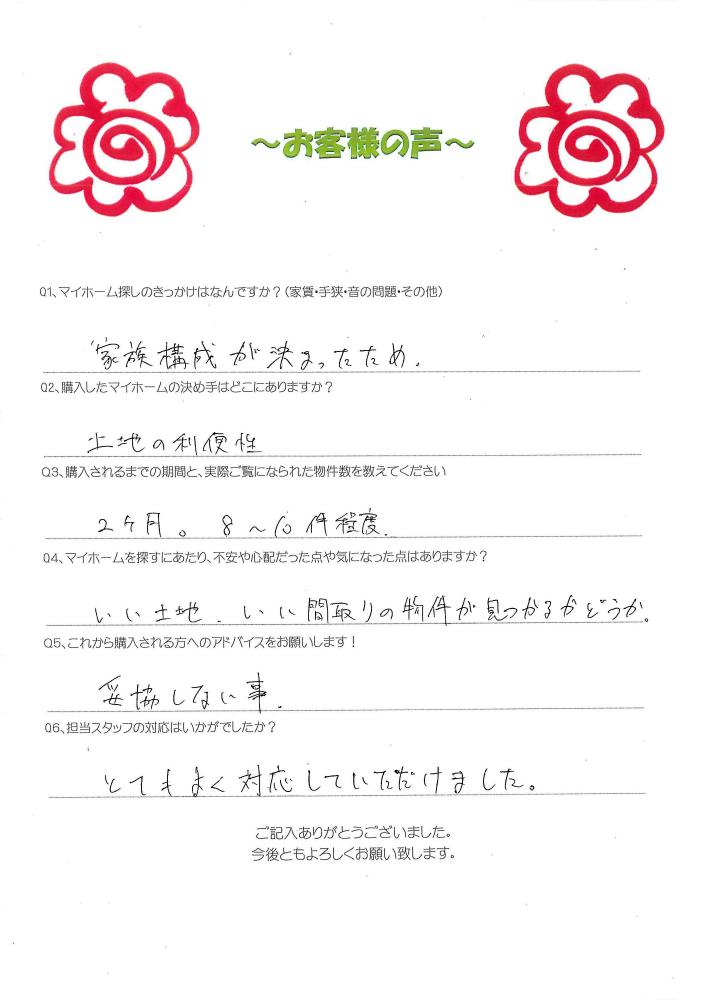 ～お客様の声～
Q1、マイホーム探しのきっかけはなんですか？（家賃・手狭・音の問題・その他）
家族構成が決まったため.
Q2、購入したマイホームの決め手はどこにありますか？
土地の利便性
Q3、購入されるまでの期間と、実際ご覧になられた物件数を教えてください
2ヶ月。8～10件程度.
Q4、マイホームを探すにあたり、不安や心配だった点や気になった点はありますか？
いい土地.いい間取りの物件が見つかるかどうか。
Q5、これから購入される方へのアドバイスをお願いします！
妥協しない事.
Q6、担当スタッフの対応はいかがでしたか？
とてもよく対応していただけました。
ご記入ありがとうございました。
今後ともよろしくお願い致します。